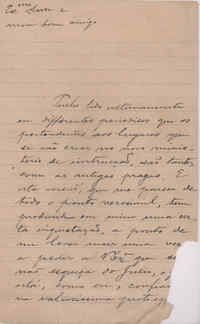 Ex.mo Snr e
meu bom amigo
Tenho lido ultimamente
em differentes periodicos que os
pretendentes aos lugares que
se vão crear no novo minis-
terio de instrucção, são tantos
como as antigas pragas. E
esta noticia, que me parece de
todo o ponto verosimil, tem
produzido em mim uma cer-
ta inquietação, a ponto de
me levar mais uma vez
a pedir a V. Exa que se
não esqueça do
está, como eu, confia
na valiosissima protecç